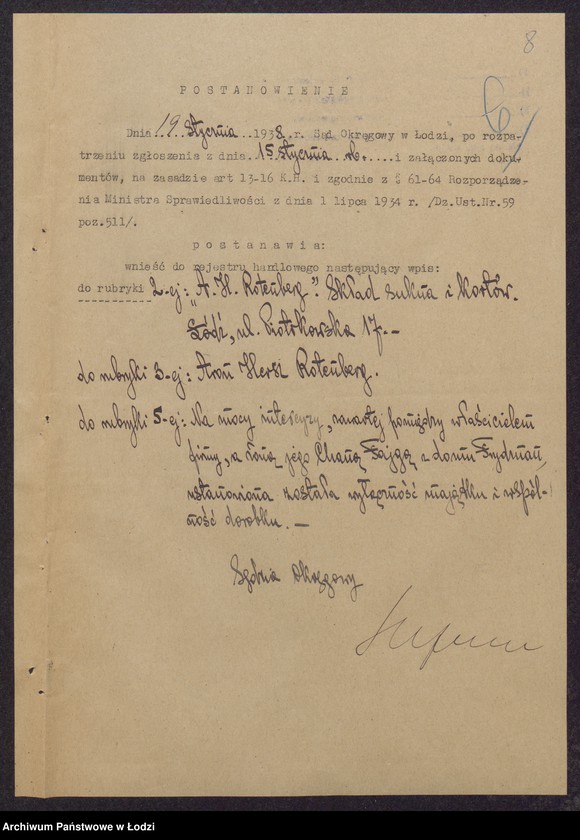 8
POSTANOWIENIE
Dnia..19 stycznia...1938.r. Sąd Okręgowy w Łodzi, po rozpa-
trzeniu zgłoszenia z dnia.15 stycznia rb.....i załączonych doku-
mentów, na zasadzie art 13-16 K.H. i zgodnie z § 61-64 Rozporządze-
nia Ministra Sprawiedliwości z dnia 1 lipca 1934 r. /Dz.Ust.Nr.59
poz.511/.
postanawia:
wnieść do rejestru handlowego następujący wpis:
do rubryki 2-ej: "A. H. Rotenberg". Skład sukna i kortów.
Łódź, ul. Piotrkowska 17.-
do rubryki 3-ej: Aron Hersz Rotenberg.
do rubryki 5-ej: Na mocy intercyzy, zawartej pomiędzy właścicielem
firmy, a żoną jego Chaną Fajgą z domu Frydman,
ustanowiona została wyłączność majątku i wspól-
ność dorobku. -
Sędzia Okręgowy
Archiwum Państwowe w Łodzi